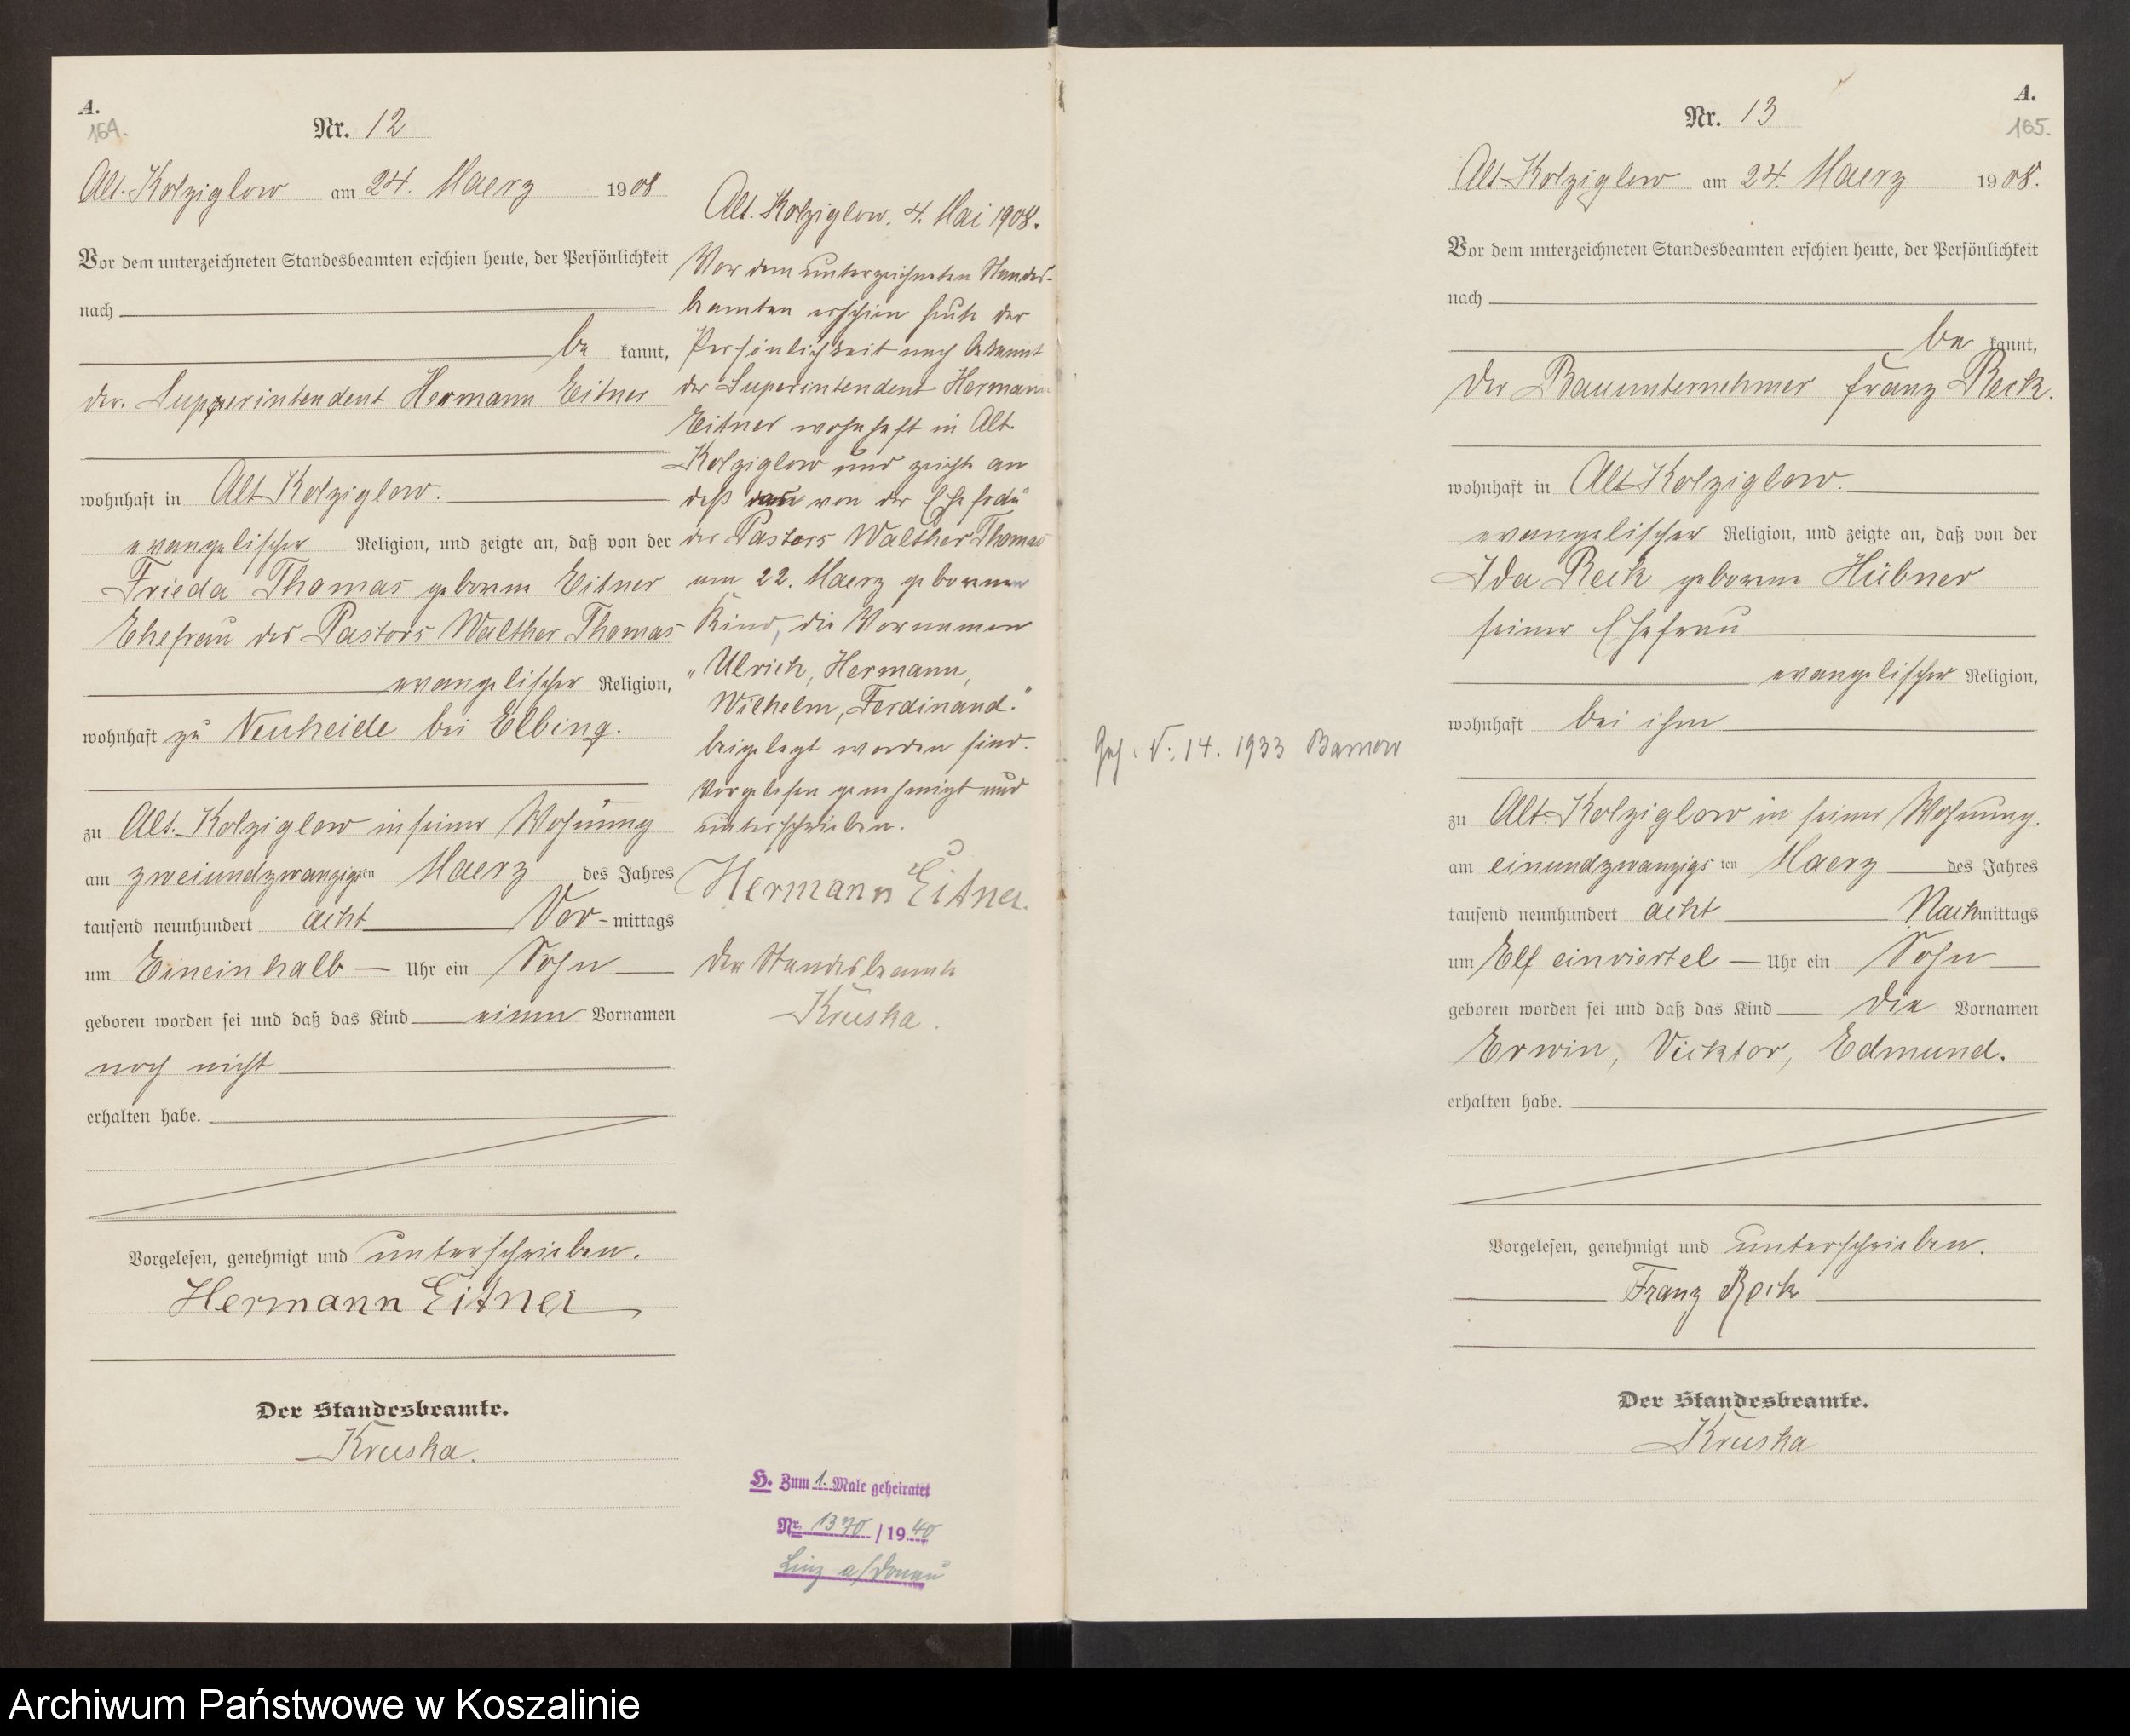 A.
164.
Nr. 12
Alt-Kolziglow am 24. Maerz 1908
Vor dem unterzeichneten Standesbeamten erschien heute, der Persönlichkeit
nach
be kannt,
der Supperintendent Hermann Eitner
wohnhaft in Alt Kolziglow.
evangelischer Religion, und zeigte an, daß von der
Frieda Thomas geborene Eitner
Ehefrau des Pastors Walther Thomas
evangelischer Religion,
wohnhaft zu Neuheide bei Elbing.
zu Alt-Kolziglow in seiner Wohnung
am zweiundzwanzigsten Maerz des Jahres
tausend neunhundert acht Vor-mittags
um Eineinhalb Uhr ein Sohn
geboren worden sei und daß das Kind einen Vornamen
noch nicht
erhalten habe.
Vorgelesen, genehmigt und unterschrieben.
Hermann Eitner
Der Standesbeamte.
Kruska.
Alt. Kolziglow. 4. Mai 1908.
Vor dem unterzeichneten Standes-
beamten erschien heute der
Persönlichkeit nach bekannt
der Superintendent Hermann
Eitner wohnhaft in Alt
Kolziglow und zeigte an
daß von der Ehefrau
des Pastors Walther Thomas
am 22. Maerz geborenen
Kind, die Vornamen
"Ulrich, Hermann,
Wilhelm, Ferdinand."
beigelegt worden sind.
Vorgelesen genehmigt und
unterschrieben.
Hermann Eitner.
Der Standesbeamte
Kruska.
H. Zum 1. Male geheiratet
Nr. 1370/1940
Linz a/Donau
A.
165.
Nr. 13
Alt-Kolziglow am 24. Maerz 1908.
Vor dem unterzeichneten Standesbeamten erschien heute, der Persönlichkeit
nach
be kannt,
der Bauunternehmer Franz Reck.
wohnhaft in Alt Kolziglow.
evangelischer Religion, und zeigte an, daß von der
Ida Reck geborene Hübner
seiner Ehefrau
evangelischer Religion,
wohnhaft bei ihm
zu Alt-Kolziglow in seiner Wohnung.
am einundzwanzigsten Maerz des Jahres
tausend neunhundert acht Nachmittags
um Elf einviertel Uhr ein Sohn
geboren worden sei und daß das Kind die Vornamen
Erwin, Vicktor, Edmund.
erhalten habe.
Vorgelesen, genehmigt und unterschrieben.
Franz Reck
Der Standesbeamte.
Kruska
14. 1933 Barnow
Archiwum Państwowe w Koszalinie